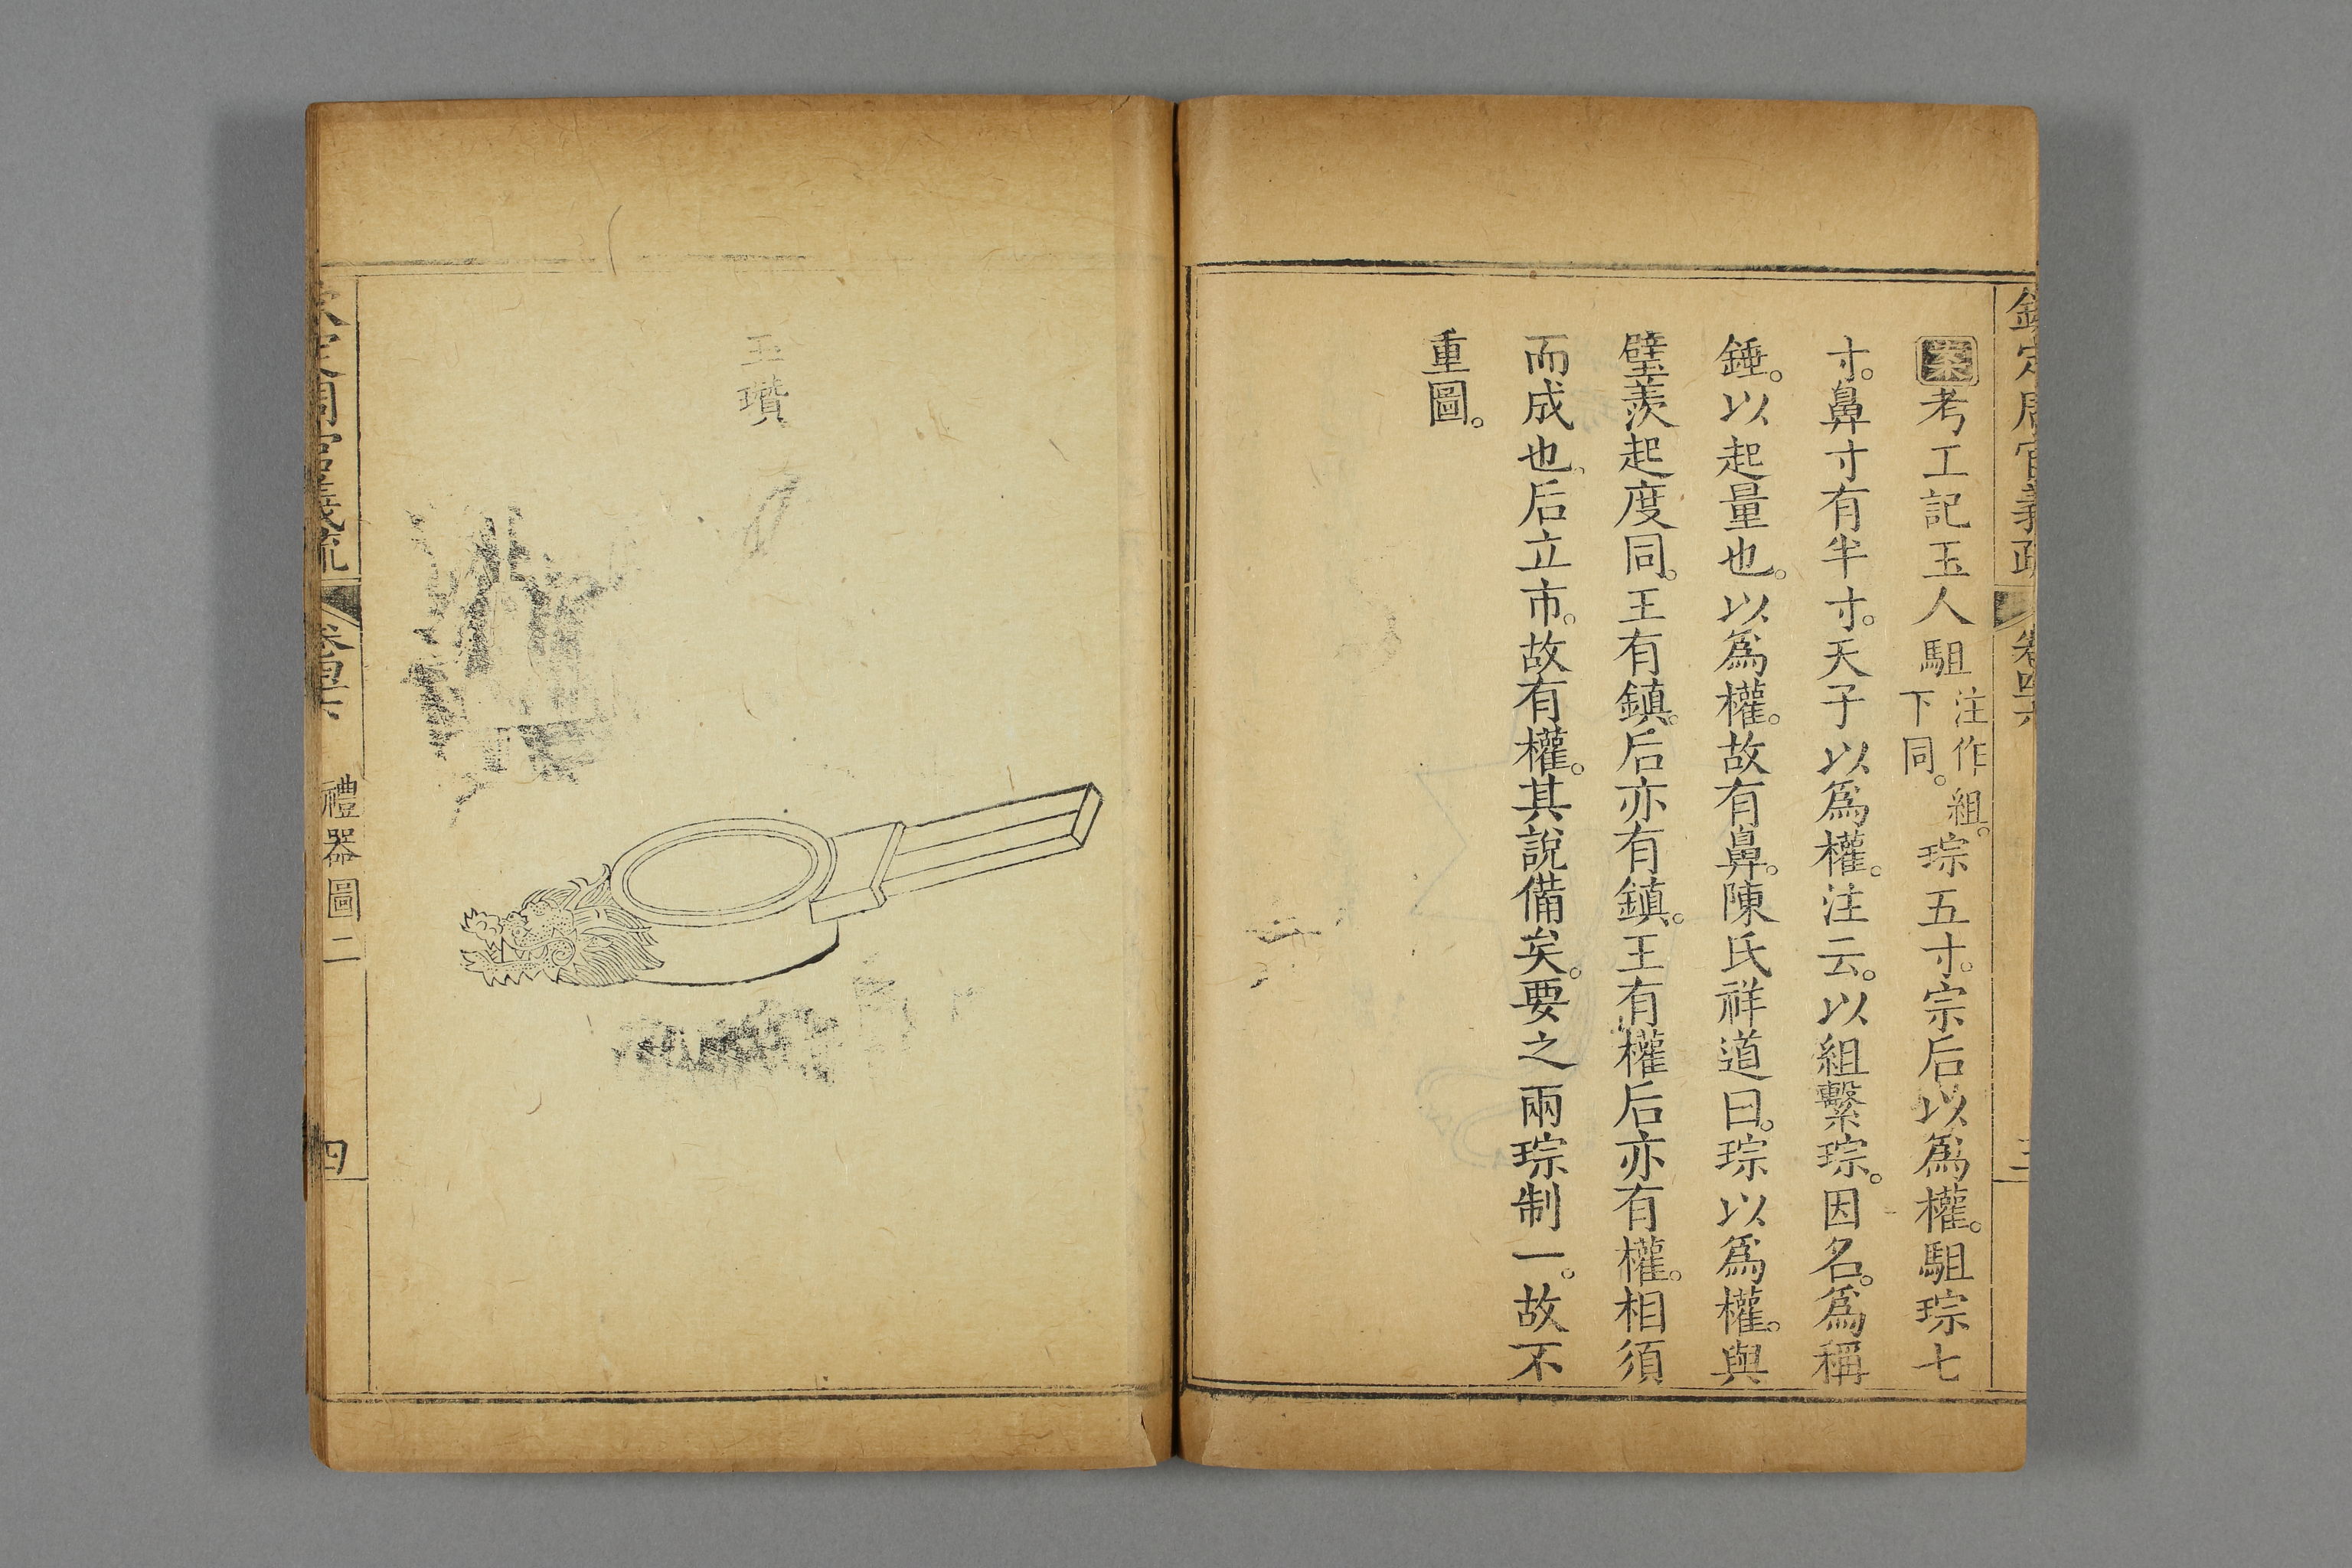 欽定周官義疏 卷四十六 三
案考工記玉人駔注作組。下同。琮五寸。宗后以爲權。駔琮七
寸。鼻寸有半寸。天子以爲權。注云。以組繫琮。因名。爲稱
錘。以起量也。以爲權。故有鼻。陳氏祥道曰。琮以爲權。與
璧羨起度同。王有鎮。后亦有鎮。王有權后亦有權。相須
而成也。后立市。故有權。其說備矣。要之兩琮制一。故不
重圖。
玉瓚
欽定周官義疏 卷四十六 禮器圖二 四